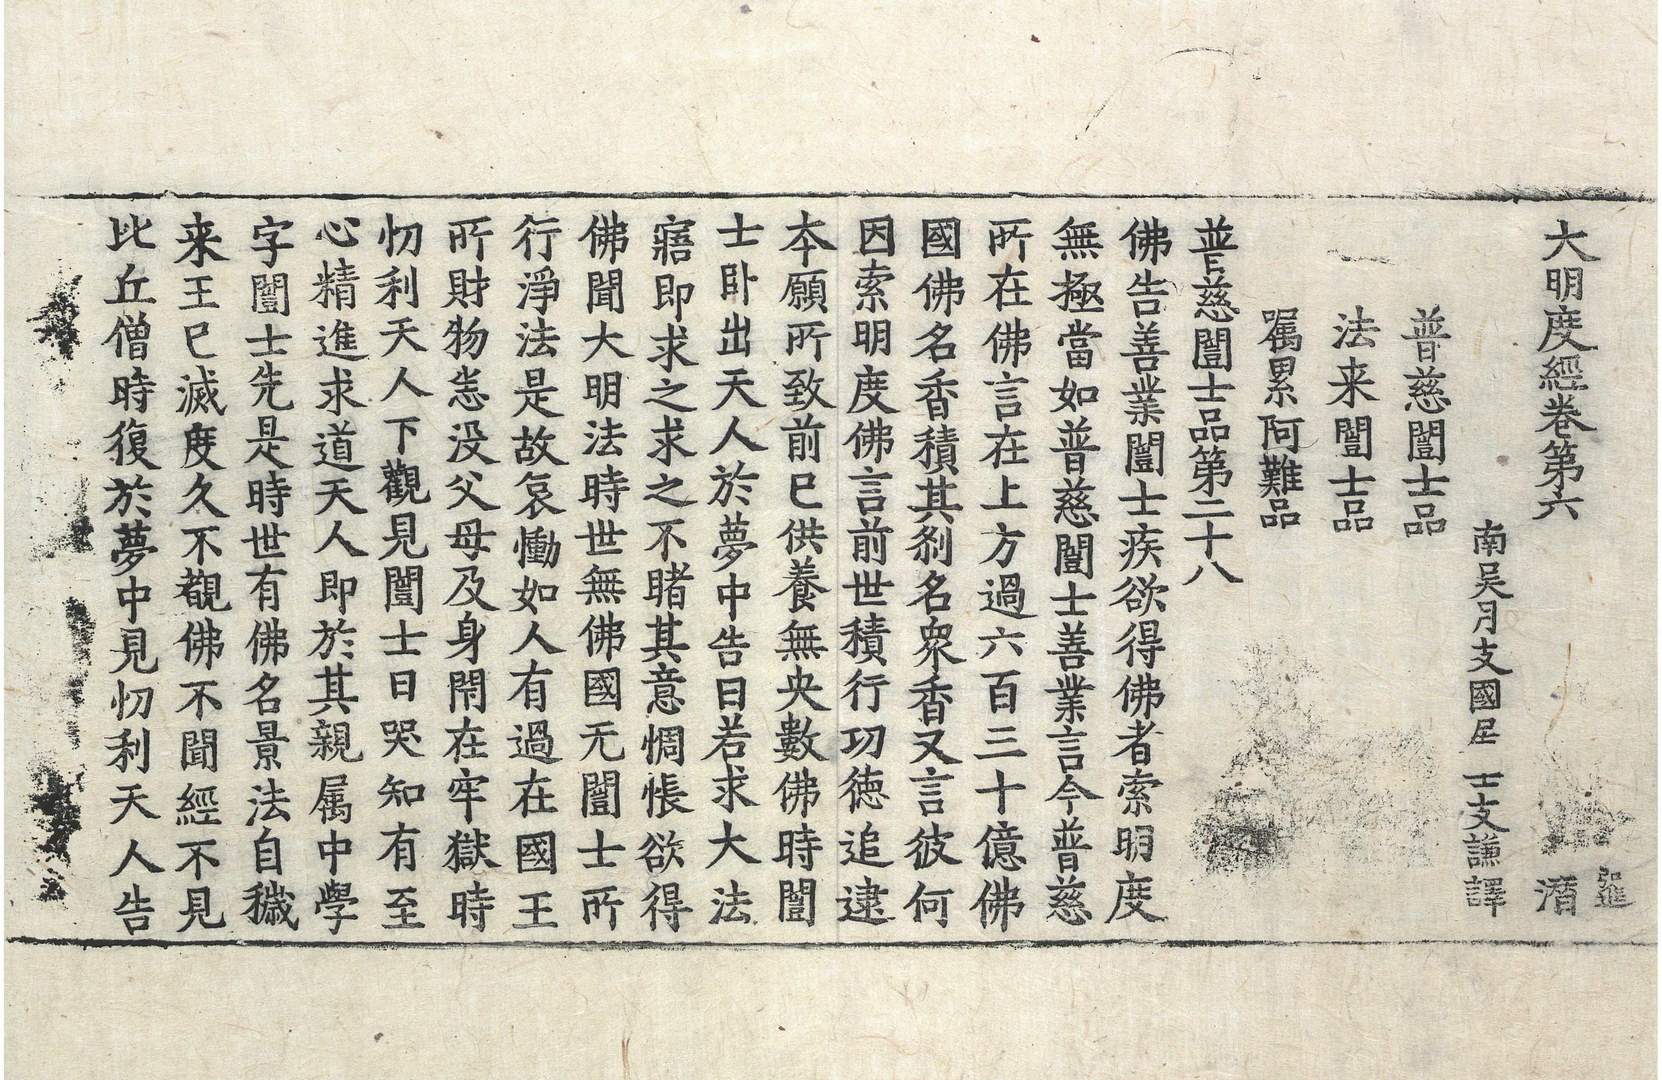 大明度經卷第六 潛
南吴月支國居士支謙譯
普慈闓士品
法来闓士品
囑累阿難品
普慈闓士品第二十八
佛告善業闓士疾欲得佛者索明度
無極當如普慈闓士善業言今普慈
所在佛言在上方過六百三十億佛
國佛名香積其刹名衆香又言彼何
因索明度佛言前世積行功德追逮
本願所致前已供養無央數佛時闓
士卧出天人於夢中告曰若求大法
寤即求之求之不睹其意惆悵欲得
佛聞大明法時世無佛國无闓士所
行淨法是故哀慟如人有過在國王
所財物恙没父母及身閇在牢獄時
忉利天人下觀見闓士日哭知有至
心精進求道天人即於其親属中學
字闓士先是時世有佛名景法自穢
来王已滅度久不覩佛不聞經不見
比丘僧時復於夢中見忉利天人告